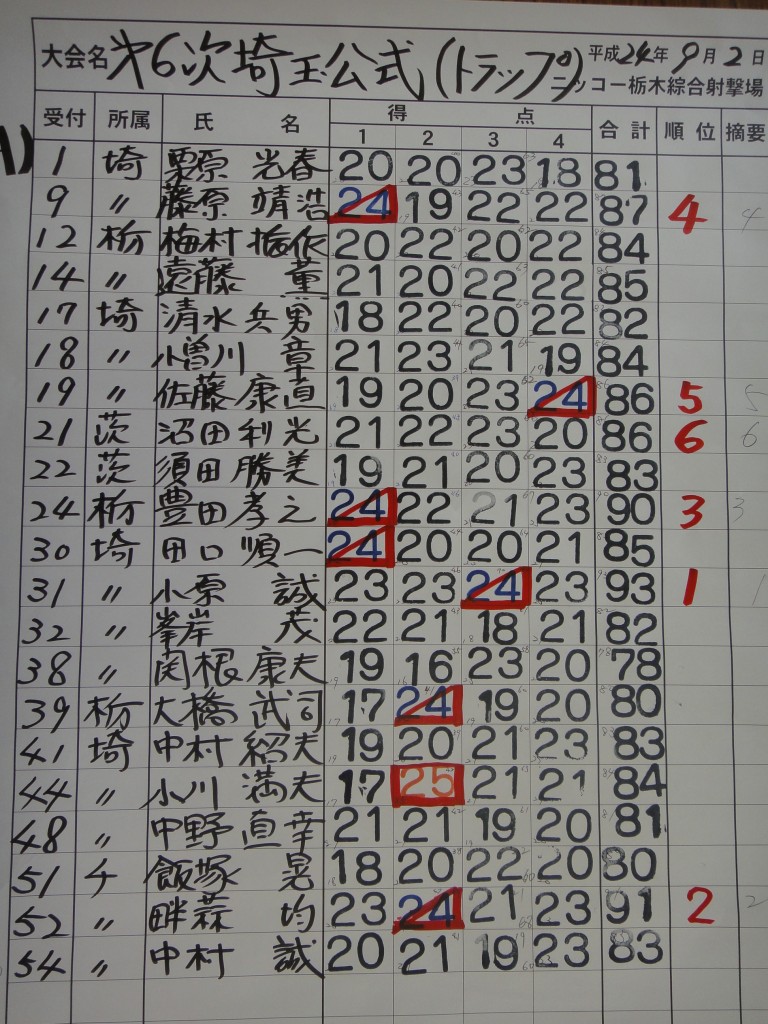 大会名 第6次埼玉公式(トラップ) 平成24年9月2日
ニッコー栃木綜合射撃場
受付 所属 氏名 得点 合計 順位 摘要
1 2 3 4
1 埼 栗原 光春 20 20 23 18 81
9 〃 藤原 靖浩 24 19 22 22 87 4 4
12 栃 梅村 振作 20 22 20 22 84
14 〃 遠藤 薫 21 20 22 22 85
17 埼 清水 兵男 18 22 20 22 82
18 〃 小曽川 章 21 23 21 19 84
19 〃 佐藤 康直 19 20 23 24 86 5 5
21 茨 沼田 利光 21 22 23 20 86 6 6
22 茨 須田 勝美 19 21 20 23 83
24 栃 豊田 孝之 24 22 21 23 90 3 3
30 埼 田口 順一 24 20 20 21 85
31 〃 小原 誠 23 23 24 23 93 1 1
32 〃 峯岸 茂 22 21 18 21 82
38 〃 関根 康夫 19 16 23 20 78
39 栃 大橋 武司 17 24 19 20 80
41 埼 中村 紹夫 19 20 21 23 83
44 〃 小川 満夫 17 25 21 21 84
48 〃 中野 直幸 21 21 19 20 81
51 千 飯塚 晃 18 20 22 20 80
52 〃 畔蒜 均 23 24 21 23 91 2 2
54 〃 中村 誠 20 21 19 23 83